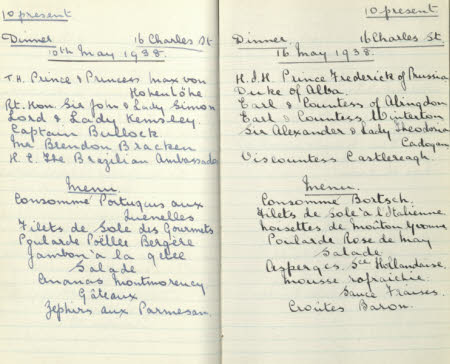 10 present
Dinner. 16 Charles St
10th May 1938.
T.H. Prince & Princess Max von
Hohenlöhe
Rt. Hon. Sir John & Lady Simon
Lord & Lady Kemsley.
Captain Bullock.
Mr Brendon Bracken
H.E. The Brazilian Ambassado
Menu.
Consommé Portugus aux
Quenelles
Filets de Sole des Gourmets
Poularde Poëllée Bergère
Jambon à la gelée
Salade
Ananas Montmorency
Gâteaux
Zephirs aux Parmesan.
10 present
Dinner. 16 Charles St
16 May 1938.
H.I.H. Prince Frederick of Prussia
Duke of Alba.
Earl & Countess of Abingdon
Earl & Countess Winterton
Sir Alexander & Lady Theodosia
Cadogan
Viscountess Castlereagh.
Menu.
Consommé Bortsch.
Filets de Sole à l'Italienne.
Noisettes de Moûton Yvonne
Poularde Rose de May
Salade
Asperges. Sce Hollandaise.
Mousse rafraichie
Sauce Fraises.
Croûtes Baron.